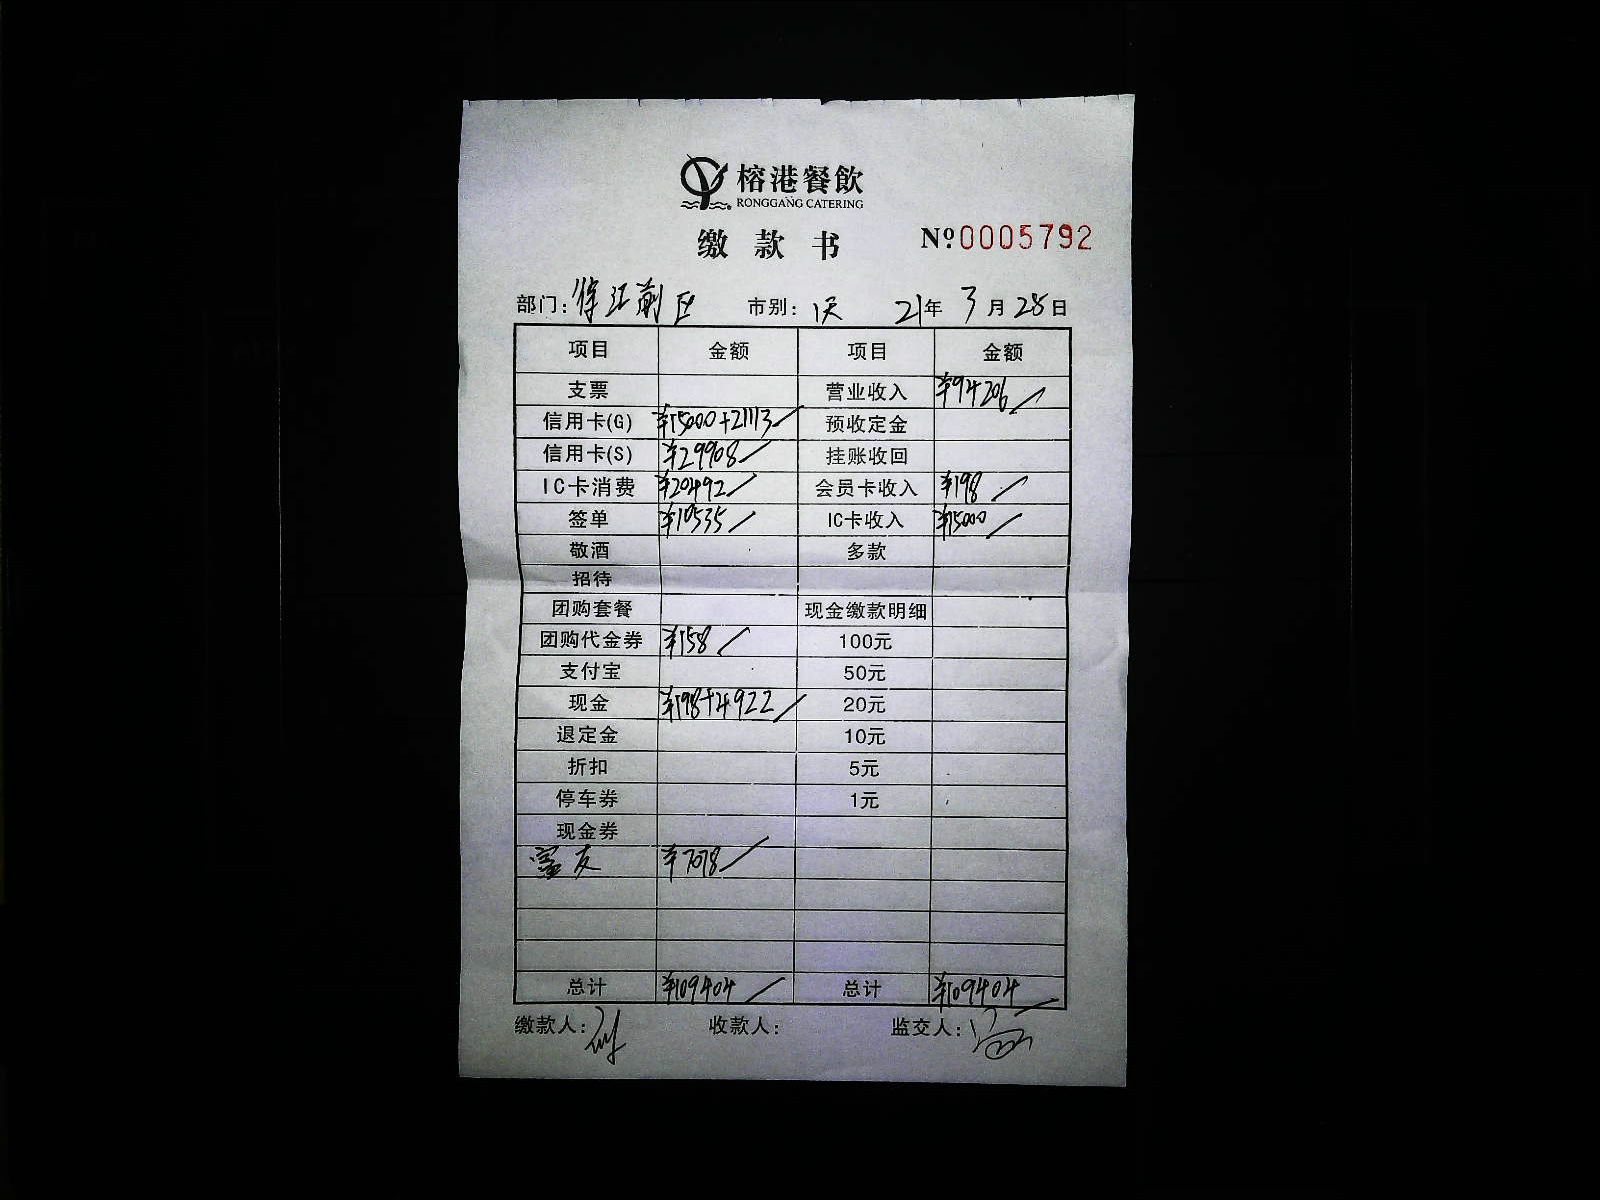 榕港餐飲
RONGGANG CATERING
缴款书 Nº0005792
部门: 徐汇前区 市别: 1天 21年 3月 28日
项目 金额 项目 金额
支票 营业收入 ¥94206
信用卡(G) ¥15000+21113 预收定金
信用卡(S) ¥29908 挂账收回
IC卡消费 ¥20492 会员卡收入 ¥198
签单 ¥10535 IC卡收入 ¥15000
敬酒 多款
招待
团购套餐 现金缴款明细
团购代金券 ¥158 100元
支付宝 50元
现金 ¥198+4922 20元
退定金 10元
折扣 5元
停车券 1元
现金券
富友 ¥7078
总计 ¥109404 总计 ¥109404
缴款人: 收款人: 监交人: